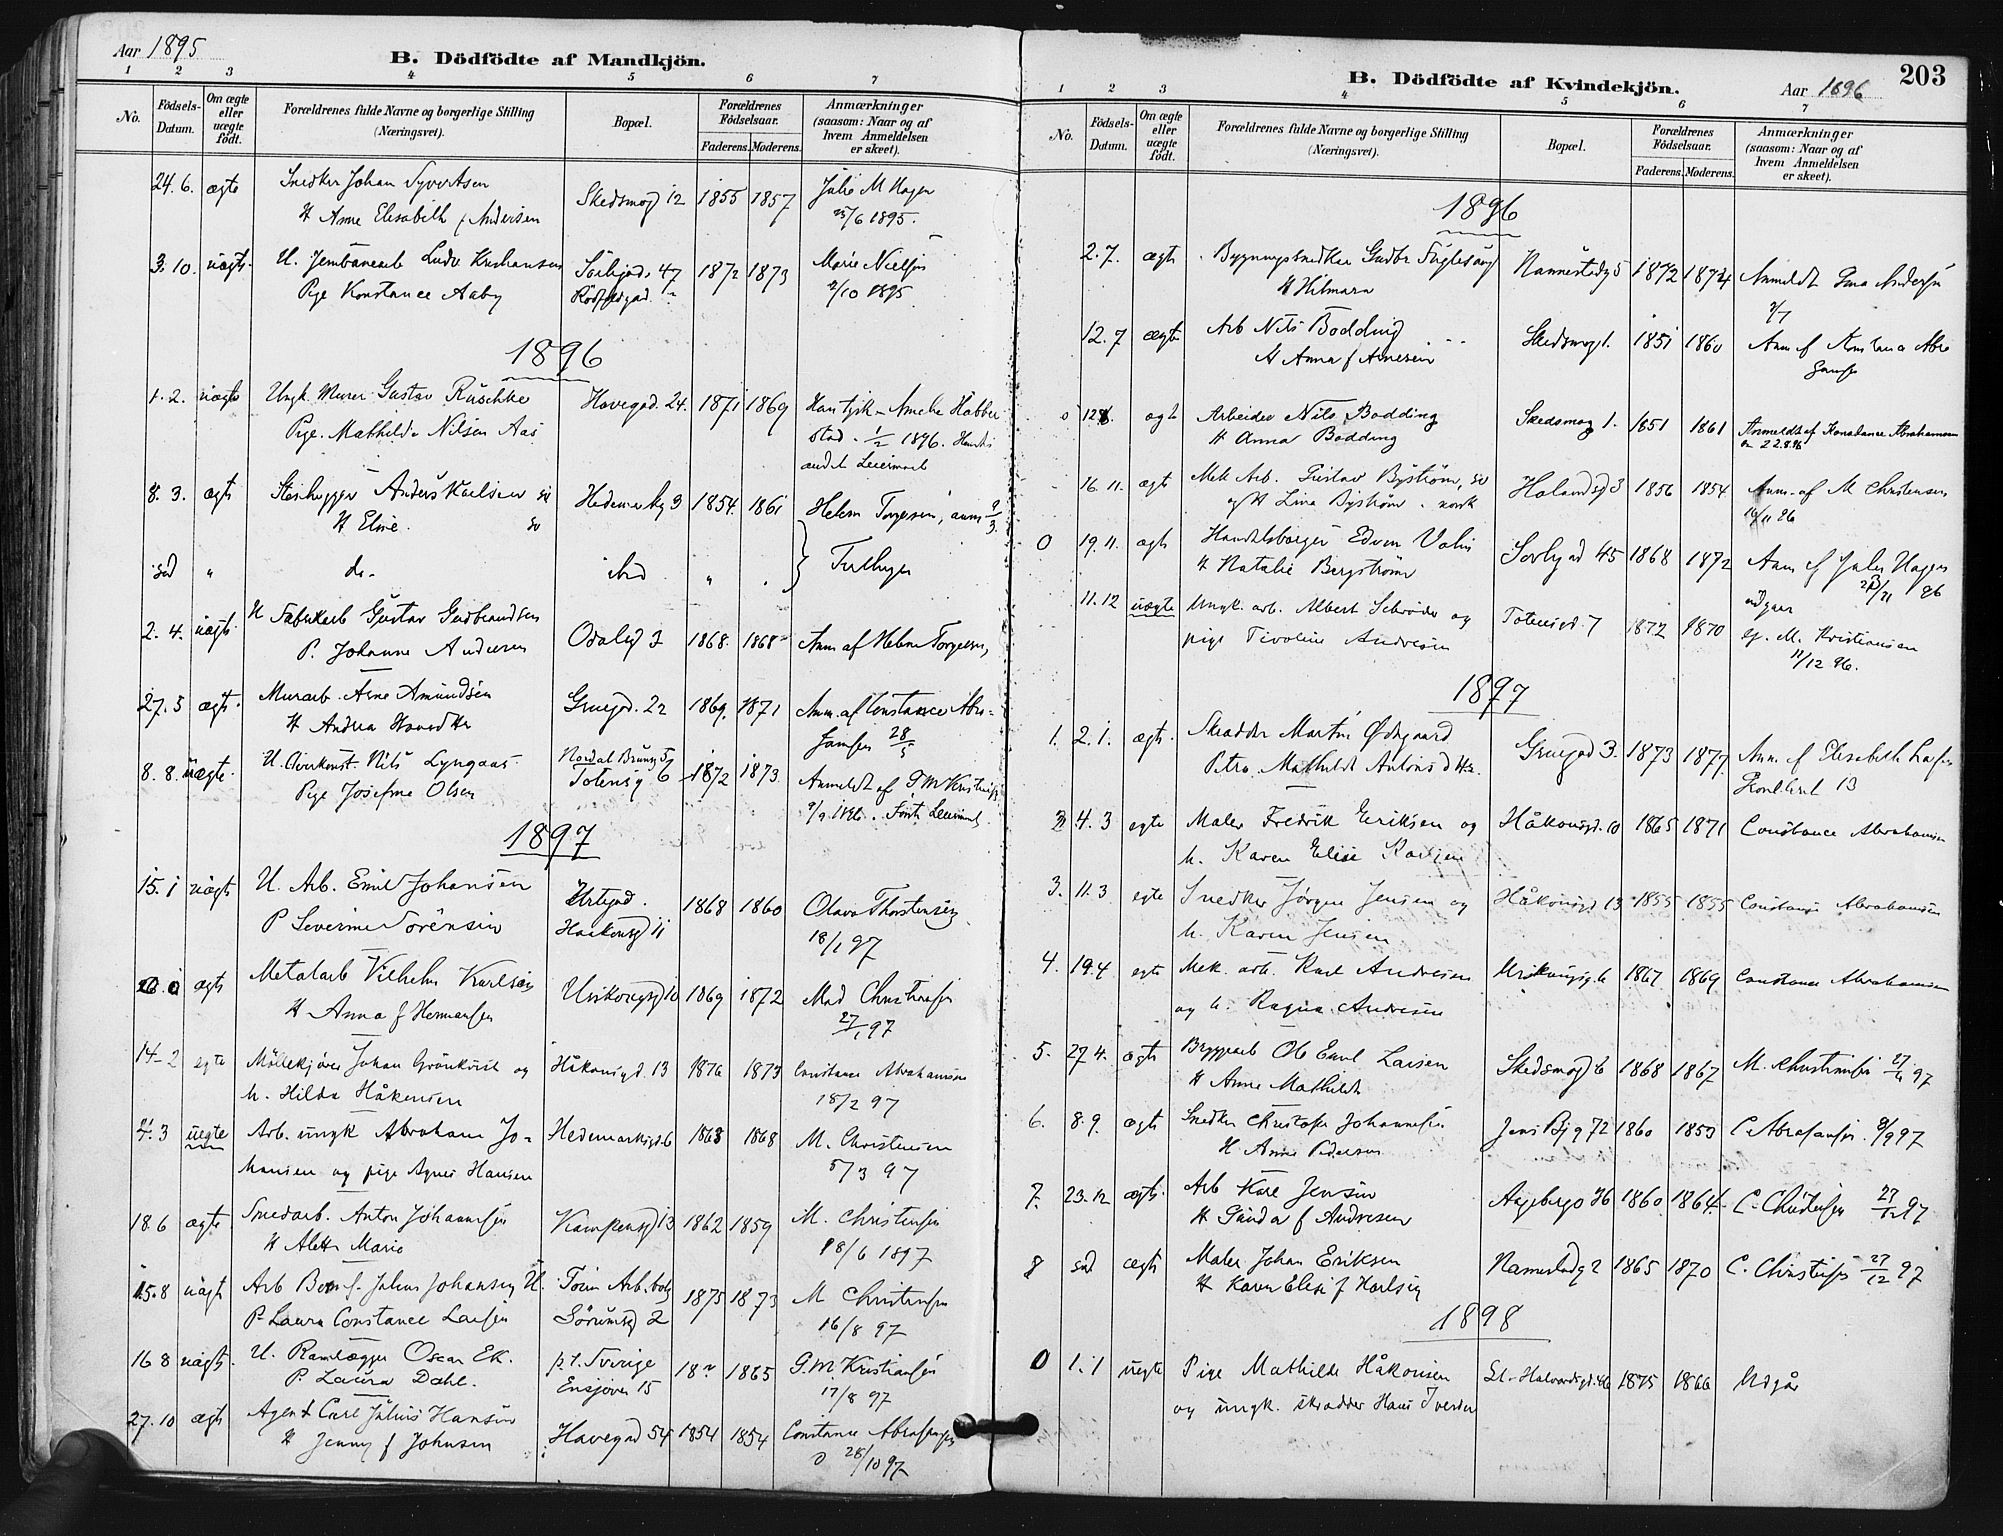 Aar 1895
B. Dödfödte af Mandkjön.
1 2 3 4 5 6 7
No.
Födsels-Datum.
Om ægte eller uægte födt.
Forældrenes fulde Navne og borgerlige Stilling (Næringsvei).
Bopæl.
Forældrenes Födselsaar.
Faderens. Moderens.
Anmærkninger (saasom: Naar og af hvem Anmeldelsen er skeet).
24.6. ægte Snedker Johan Syvertsen Skedsmogd 12 1855 1857 Julie M Hagen
H Anne Elisabeth f Andersen 25/6 1895.
3.10. uægte. U. Jernbanearb Ludv Kristiansen 47 1872 1873 Marie Nielsen
Pige Konstance Aaby /10 1895
1896
1.2. uægte Ungk. Murer Gustav Rüschke Havegad. 24. 1871 1869 Amalie Habber
Pige. Mathilde Nilsen Aas stad. 1/2 1896.
andet Leiermaal
8.3. ægte Stenhugger Anders Karlsen Hedemarkg 3 1854. 1861 Helene Torgersen, anm 9/3.
H Eline.
sad " do- ibid " . Tvillinger
2.4. uægte. U Fabrikarb Gustav Gudbrandsen Odalsg 3 1868. 1868 Anm af Helene Torgersen,
P. Johanne Andersen
27.5 ægte. Murarb. Arne Amundsen Gruegd. 22 1869. 1871 Anm. af Constance Abra=
H Andrea 28/5
8.8. uægte. U. Nils Lyngaas 1872 1873. Anmeldt af G M Kristiansen
Pige Josefine Olsen Totensg 6 Første Leiermaal.
1897
15.1 uægte U. Arb. Emil Johansen Urtegad. 1868 1860 Olava Thorstensen
P Severine Sörensen Haakonsg 11 18/1 97
ægte Metalarb Vilhelm Karlsen 10 1869 1872 Mad Christiansen
H Anna f Hermansen 27/1 97
14-2 egte Møllekjører Johan Grönkvist og Håkonsgd. 13 1876 1873 Constance Abrahamsen
h. Hilda Håkensen 18/2 97
4.3 uegte Arb. ungk Abraham Jo- Hedemarksgd. 6 1868 1868 M. Christensen
hansen og pige Agnes Hansen 5/3 97
18.6 ægte Smedarb. Anton Johannesen Kampensgd 13 1862 1859 M. Christensen
H Alette Marie 18/6 1897
15.8 uægte Arb Julius Johansen U. 1875 1873 M Christensen
P Laura Constance Larsen Sörumsg 2 16/8 97
16 8 uægte. U. Oscar Ek. p.t. Sverige 18" 1865 G.M. Kristiansen
P. Laura Dahl. Ensjøvei 15 17/8 97
27.10 ægte Agent Carl Julius Hansen Havegad 54 1854 1854 Constance Abrahamsen
H Jenny f Johnsen 28/10 97
203
B. Dödfödte af Kvindekjön.
Aar 1896
1 2 3 4 5 6 7
No.
Födsels-Datum.
Om ægte eller uægte födt.
Forældrenes fulde Navne og borgerlige Stilling (Næringsvei).
Bopæl.
Forældrenes Födselsaar.
Faderens. Moderens.
Anmærkninger (saasom: Naar og af hvem Anmeldelsen er skeet).
1896
2.7. ægte Bygningssnedker Gudbr Fuglesang Nannestadg 5 1872 1874 Anmeldt Andersen
H Hilmara
12.7 ægte Arb Nils Bodding Skedsmog 1. 1851 1860 Anm af
H Anna f Arnesen
o ægte Arbeider Nils Bodding Skedsmog 1. 1851 1861 Anmeldt af Konstance Abrahamsen
H Anna Bodding 22.8.96
16.11. ægt Mek Arb. Gustav Byström, sv Holandsgd 3 1856 1854 Anm. af M Christensen
og H Lina Byström. norsk 16/11 96
0 19.11. ægte Handelsborger Edvin Volin Sorligad 45 1868 1872 Anm af Hagen
H Natalie Bergström /11 96
udgaar
11.12 uægte Ungk. arb. Albert Schrøder og Totensgd. 7 1872 1870 ef. M. Kristiansen
pige Tivoline Andresen 11/12 96.
1897
1. 2.1. ægte. Skrædder Martin Ødegaard Gruegad 3. 1873 1877. Anm. af Elisabeth Larsen
Petra Mathilde 13
2 4.3 egte Maler Fredrik Eriksen og Håkonsgd. 10 1865 1871 Constance Abrahamsen
h. Karen Elise Karlsen
3. 11.3 egte Snedker Jørgen Jensen og Håkonsgd 13 1855 1855 Constance Abrahamsen
h. Karen Jensen
4. 19.4 egte Mek. arb. Karl Andresen 1867 1869 Constance Abrahamsen
og h. Ragna Andresen
5. 27.4. ægte Bryggearb Ole Emil Larsen Skedsmogd 6 1868 1867 M. Christiansen 27/4 97
H Anne Mathilde
6. 8.9. ægte Snedker Christoffer Johannesen Jens Bj g 72 1860 1853 C Abrahamsen. 8/9 97
H Anne Pedersen
7. 23.12 ægte Arb Karl Jensen Aagebergv 36 1860 1864 C. Christensen 27/12 97
H Gunda f Andresen
8 sad ægte Maler Johan Eriksen Namestadg 2 1865 1870 C. Christensen 27/12 97
H Karen Elise f Karlsen
1898
0 1.1 uegte Pige Mathilde Håkonsen St. Halvardsgd. 46 1875 1866 Udgår
og ungk. skrædder Hans Iversen